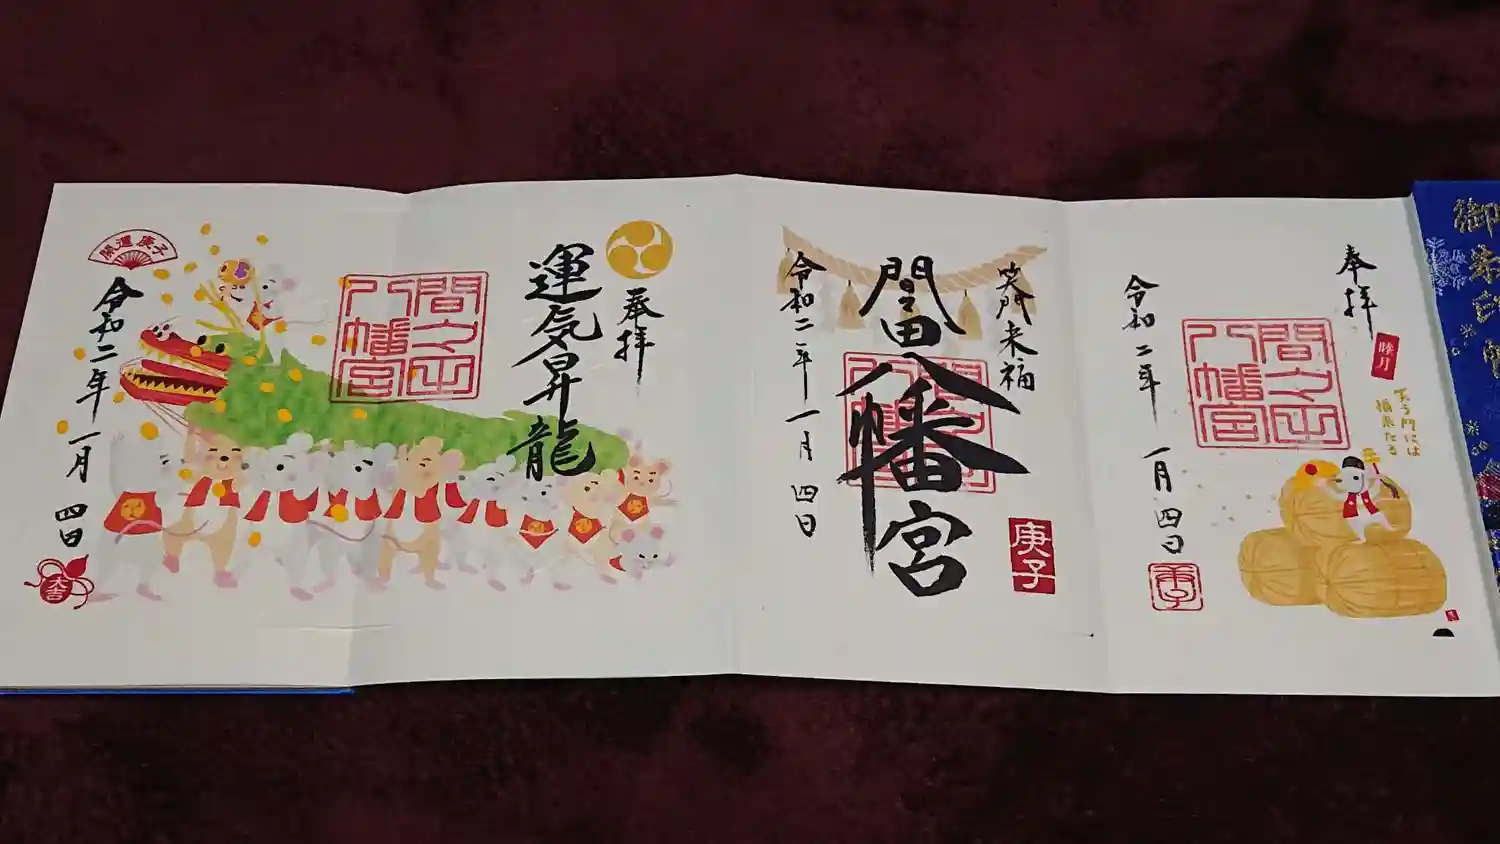 御朱印帳
奉拝
睦月
笑う門には
福来たる
間々田
八幡宮
令和二年 一月 四日
庚子
笑門来福
間々田八幡宮
間々田
八幡宮
令和二年 一月 四日
庚子
奉拝
運気昇龍
間々田
八幡宮
開運 庚子
令和二年 一月 四日
大吉